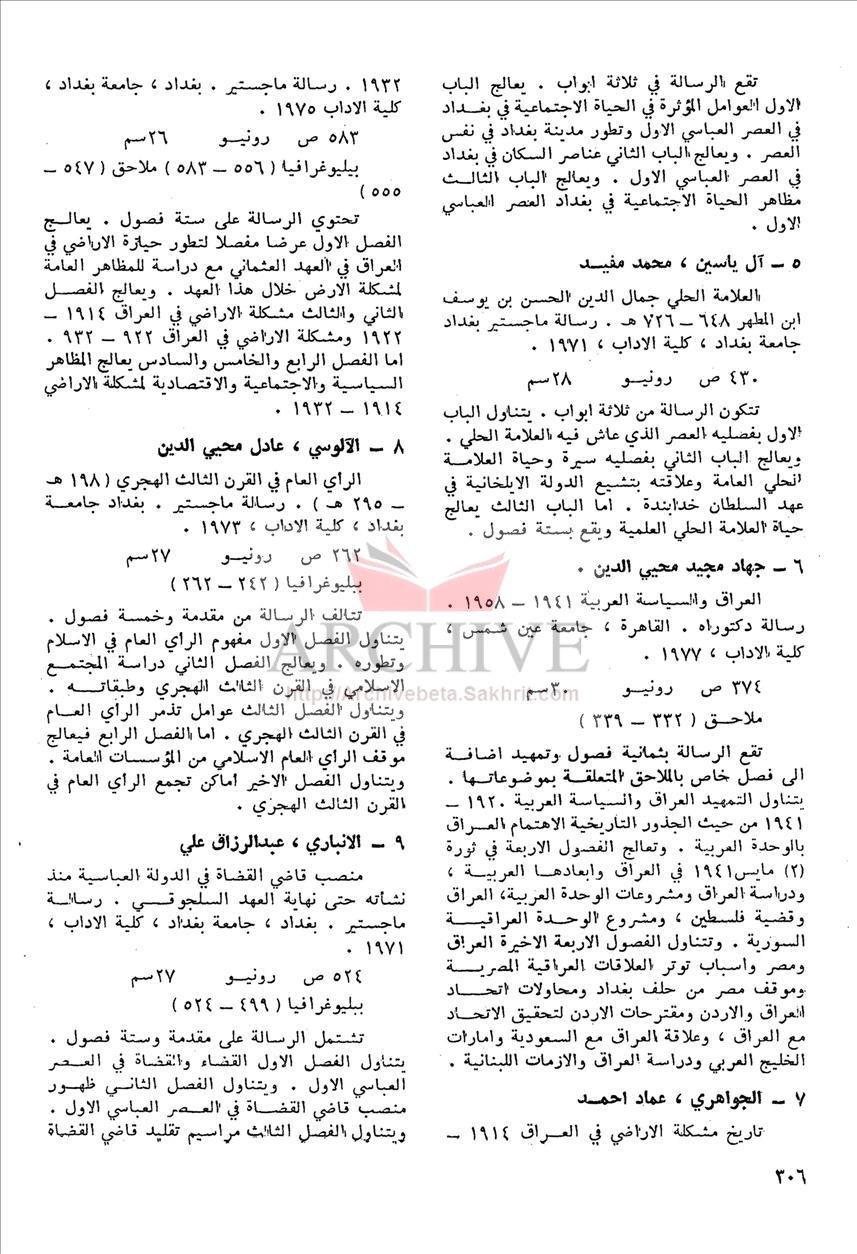 تقع الرسالة في ثلاثة ابواب . يعالج الباب
الاول العوامل المؤثرة في الحياة الاجتماعية في بغـداد
في العصر العباسي الاول وتطور مدينة بغداد في نفس
العصر . ويعالج الباب الثاني عناصر السكان في بغداد
في العصر العباسي الاول . ويعالج الباب الثالــث
مظاهر الحياة الاجتماعية في بغداد العصر العباسي
الاول .
٥ ــ آل ياسين ، محمد مفيــد
العلامة الحلي جمال الدين الحسن بن يوسف
ابن المطهر ٦٤٨ ــ ٧٢٦ هـ . رسالة ماجستير بغداد
جامعة بغداد ، كلية الاداب ، ١٩٧١ .
٤٣٠ ص رونيـــو ٢٨سم
تتكون الرسالة من ثلاثة ابواب . يتناول الباب
الاول بفصليه العصر الذي عاش فيه العلامة الحلي .
ويعالج الباب الثاني بفصليه سيرة وحياة العلامــة
الحلي العامة وعلاقته بتشيع الدولة الايلخانية في
عهد السلطان خدابندة . اما الباب الثالث يعالج
حياة العلامة الحلي العلمية ويقع بستة فصول .
٦ ــ جهاد مجيد محيي الدين .
العراق والسياسة العربية ١٩٤١ ــ ١٩٥٨ .
رسالة دكتوراه . القاهرة ، جامعة عين شمس ،
كلية الاداب ، ١٩٧٧ .
٣٧٤ ص رونيـــو ٣٠سم
ملاحــق ( ٣٣٢ ــ ٣٣٩ )
تقع الرسالة بثمانية فصول وتمهيد اضافــة
الى فصل خاص بالملاحق المتعلقــة بموضوعاتهـا .
يتناول التمهيد العراق والسياسة العربية ١٩٢٠ ــ
١٩٤١ من حيث الجذور التاريخية الاهتمام العــراق
بالوحدة العربية . وتعالج الفصول الاربعة في ثورة
(٢) مايس١٩٤١ في العراق وابعادهــا العربيــة ،
ودراسة العراق ومشروعات الوحدة العربية، العراق
وقضية فلسطين ، ومشروع الوحــدة العراقيــة
السورية . وتتناول الفصول الاربعة الاخيرة العراق
ومصر واسباب توتر العلاقات العراقية المصريــة
وموقف مصر من حلف بغداد ومحاولات اتحــاد
العراق والاردن ومقترحات الاردن لتحقيق الاتحـاد
مع العراق ، وعلاقة العراق مع السعودية وامارات
الخليج العربي ودراسة العراق والازمات اللبنانية .
٧ ــ الجواهري ، عماد احمــد
تاريخ مشكلة الاراضي في العــراق ١٩١٤ ــ
١٩٣٢ . رسالة ماجستير . بغداد ، جامعة بغداد ،
كلية الاداب ١٩٧٥ .
٥٨٣ ص رونيـــو ٢٦سم
ببليوغرافيا ( ٥٥٦ ــ ٥٨٣ ) ملاحق ( ٥٤٧ ــ
٥٥٥ )
تحتوي الرسالة على ستة فصول . يعالــج
الفصل الاول عرضا مفصلا لتطور حيازة الاراضي في
العراق في العهد العثماني مع دراسة للمظاهر العامة
لمشكلة الارض خلال هذا العهد . ويعالج الفصــل
الثاني والثالث مشكلة الاراضي في العراق ١٩١٤ ــ
١٩٢٢ ومشكلة الاراضي في العراق ٩٢٢ ــ ٩٣٢ .
اما الفصل الرابع والخامس والسادس يعالج المظاهر
السياسية والاجتماعية والاقتصادية لمشكلة الاراضي
١٩١٤ ــ ١٩٣٢ .
٨ ــ الآلوسي ، عادل محيي الدين
الرأي العام في القرن الثالث الهجري ( ١٩٨ هـ
ــ ٢٩٥ هـ ) . رسالة ماجستير . بغداد جامعــة
بغداد ، كلية الاداب ، ١٩٧٣ .
٢٦٢ ص رونيـــو ٢٧سم
ببليوغرافيا ( ٢٤٢ ــ ٢٦٢ )
تتالف الرسالة من مقدمة وخمسة فصول .
يتناول الفصل الاول مفهوم الراي العام في الاسلام
وتطوره . ويعالج الفصل الثاني دراسة المجتمــع
الاسلامي في القرن الثالث الهجري وطبقاتــه .
ويتناول الفصل الثالث عوامل تذمر الرأي العــام
في القرن الثالث الهجري . اما الفصل الرابع فيعالج
موقف الرأي العام الاسلامي من المؤسسات العامة .
ويتناول الفصل الاخير اماكن تجمع الرأي العام في
القرن الثالث الهجري .
٩ ــ الانباري ، عبدالرزاق علي
منصب قاضي القضاة في الدولة العباسية منذ
نشأته حتى نهاية العهد السلجوقــي . رسالــة
ماجستير . بغداد ، جامعة بغداد ، كلية الاداب ،
١٩٧١ .
٥٢٤ ص رونيـــو ٢٧سم
ببليوغرافيا ( ٤٩٩ ــ ٥٢٤ )
تشتمل الرسالة على مقدمة وستة فصول .
يتناول الفصل الاول القضاء والقضاة في العصـر
العباسي الاول . ويتناول الفصل الثانــي ظهــور
منصب قاضي القضــاة في العصر العباسي الاول .
ويتناول الفصل الثالث مراسيم تقليد قاضي القضاة
٣٠٦
ARCHIVE
http://Archivebeta.Sakhrit.com